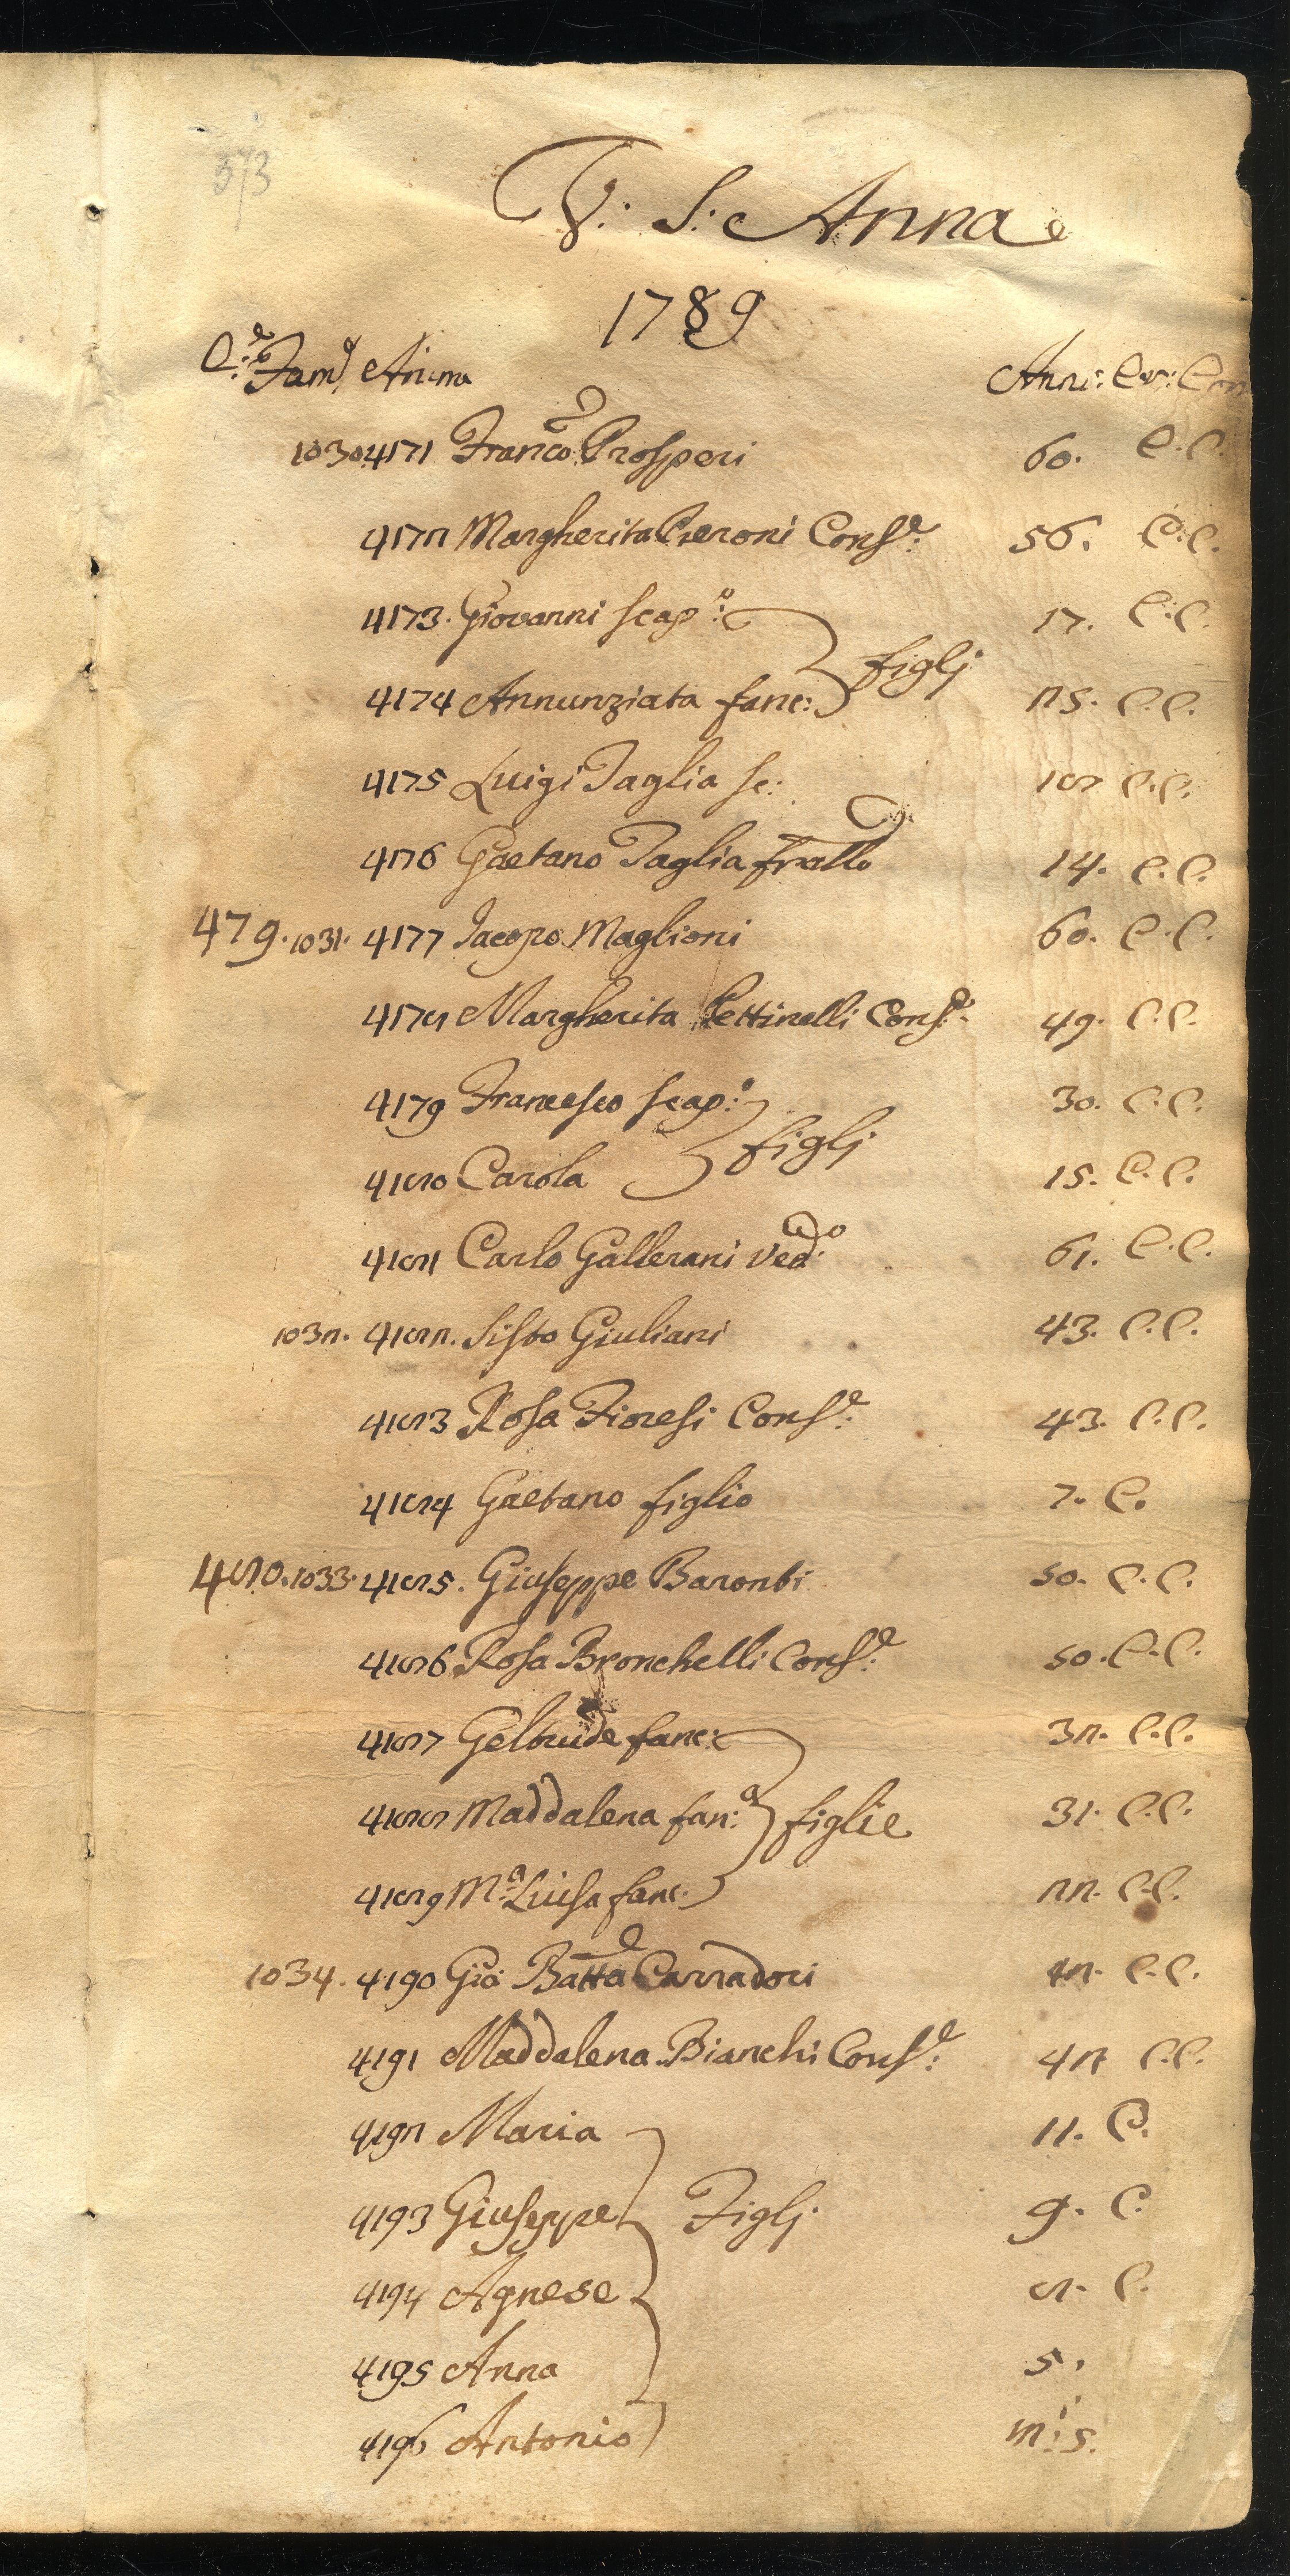 373
V: S: Anna
1789
C:e Fam: Anime Anni: Cr: Com
1030 4171 Franco: Prosperi 60. C.C.
4172 Margherita Pieroni Cons:e 56. C:C.
4173. Giovanni scap:o 17. C:C.
figlj
4174 Annunziata fanc: 25. C.C.
4175 Luigi Taglia sc: 18 C.C.
4176 Gaetano Taglia frallo 14. C.C.
479. 1031. 4177 Iacopo Maglioni 60. C.C.
4178 Margherita Pettinelli Cons:e 49. C.C.
4179 Francesco scap:o 30. C.C.
figlj
4180 Carola 15. C.C.
4181 Carlo Gallerani Ved:o 61. C.C.
1032. 4182. Sisto Giuliani 43. C.C.
4183 Rosa Fioresi Cons:e 43. C.C.
4184 Gaetano figlio 7. C.
480. 1033. 4185. Giuseppe Baronti 50. C.C.
4186 Rosa Bronchelli Cons:e 50. C.C.
4187 Geltrude fanc: 32. C.C.
4188 Maddalena fan:a figlie 31. C.C.
4189 M:a Luisa fanc. 22. C.C.
1034. 4190 Gio: Batta Carradori 42. C.C.
4191 Maddalena Bianchi Cons:e 42 C.C.
4192 Maria 11. C.
4193 Giuseppe Figlj 9. C.
4194 Agnese 8. C.
4195 Anna 5.
4196 Antonio m:i 5.